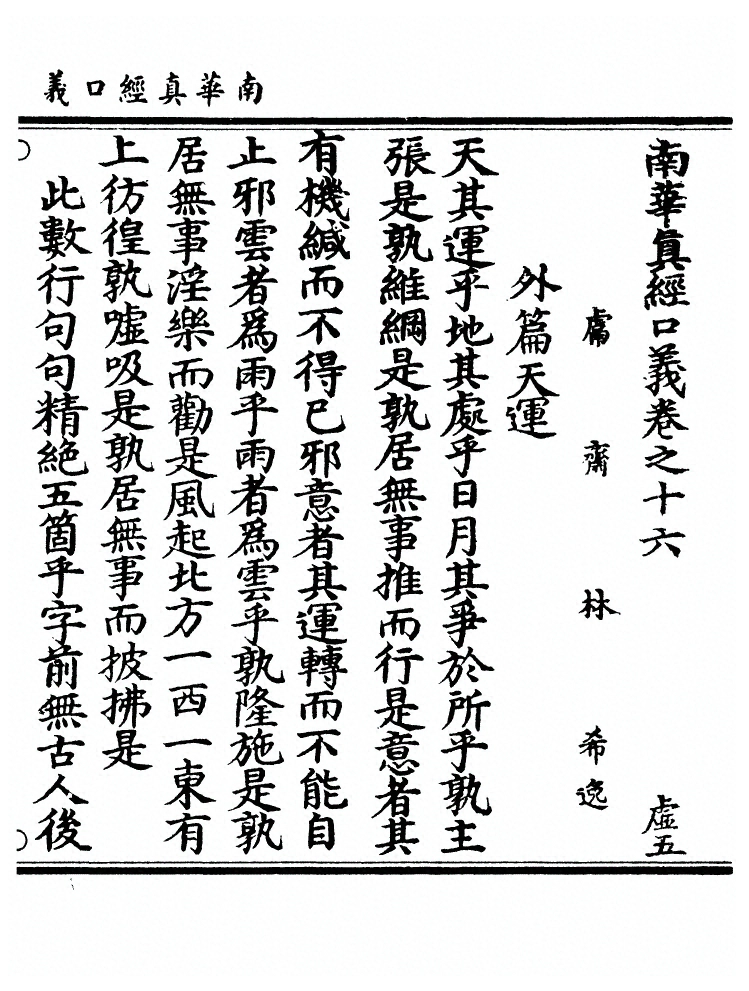 南華真經口義
南華眞經口義卷之十六 虛五
鬳齋林希逸
外篇天運
天其運乎地其處乎日月其爭於所乎孰主
張是孰維綱是孰居無事推而行是意者其
有機緘而不得已邪意者其運轉而不能自
止邪雲者爲雨乎雨者爲雲乎孰隆施是孰
居無事淫樂而勸是風起北方一西一東有
上彷徨孰噓吸是孰居無事而披拂是
此數行句句精絶五箇乎字前無古人後